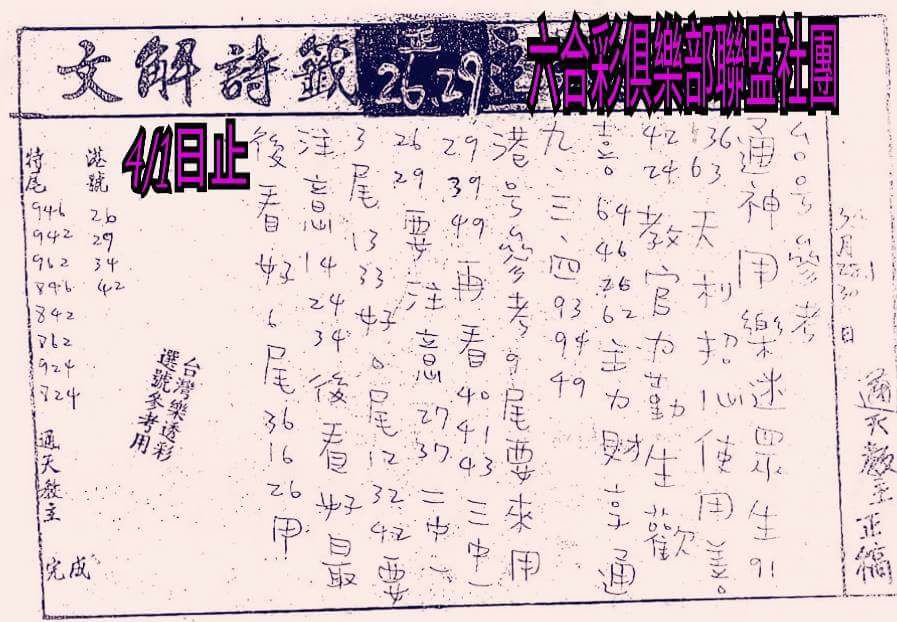 六合彩俱樂部聯盟社團
籤詩解文
26 29
4/1日止
通天教主正稿
台号參考
通神用樂迷眾生91
36 63 天利招心使用善。
42 24 教官力勤生歡
喜。64 46 26 62 主力財享通
九、三、四 93 94 49
港号參考9尾要來用
29 39 49 再看 40 41 43 三中一
26 29 要注意 27 37 二中一
3尾 13 33 好。尾 12 32 42 要
注意 14 24 34 後看好最
後看好6尾 36 16 26 用
台灣樂透彩
選號參考用
港號
26
29
34
42
特尾
946
942
962
846
842
862
924
824
通天教主
完成